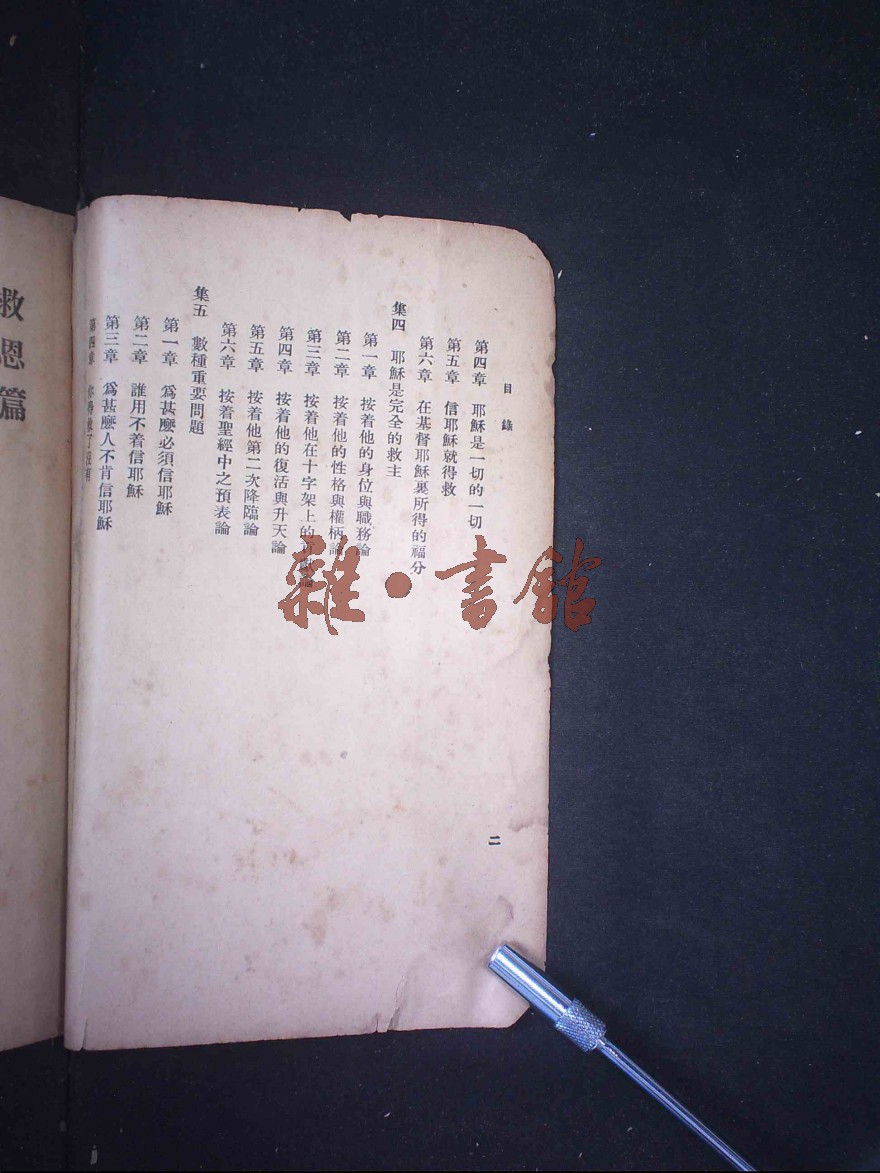 目錄
第四章 耶穌是一切的一切
第五章 信耶穌就得救
第六章 在基督耶穌裏所得的福分
集四 耶穌是完全的救主
第一章 按着他的身位與職務論
第二章 按着他的性格與權柄論
第三章 按着他在十字架上的
第四章 按着他的復活與升天論
第五章 按着他第二次降臨論
第六章 按着聖經中之預表論
集五 數種重要問題
第一章 爲甚麽必須信耶穌
第二章 誰用不着信耶穌
第三章 爲甚麽人不肯信耶穌
第四章 你得救了沒有
二
救恩篇
雜·書館